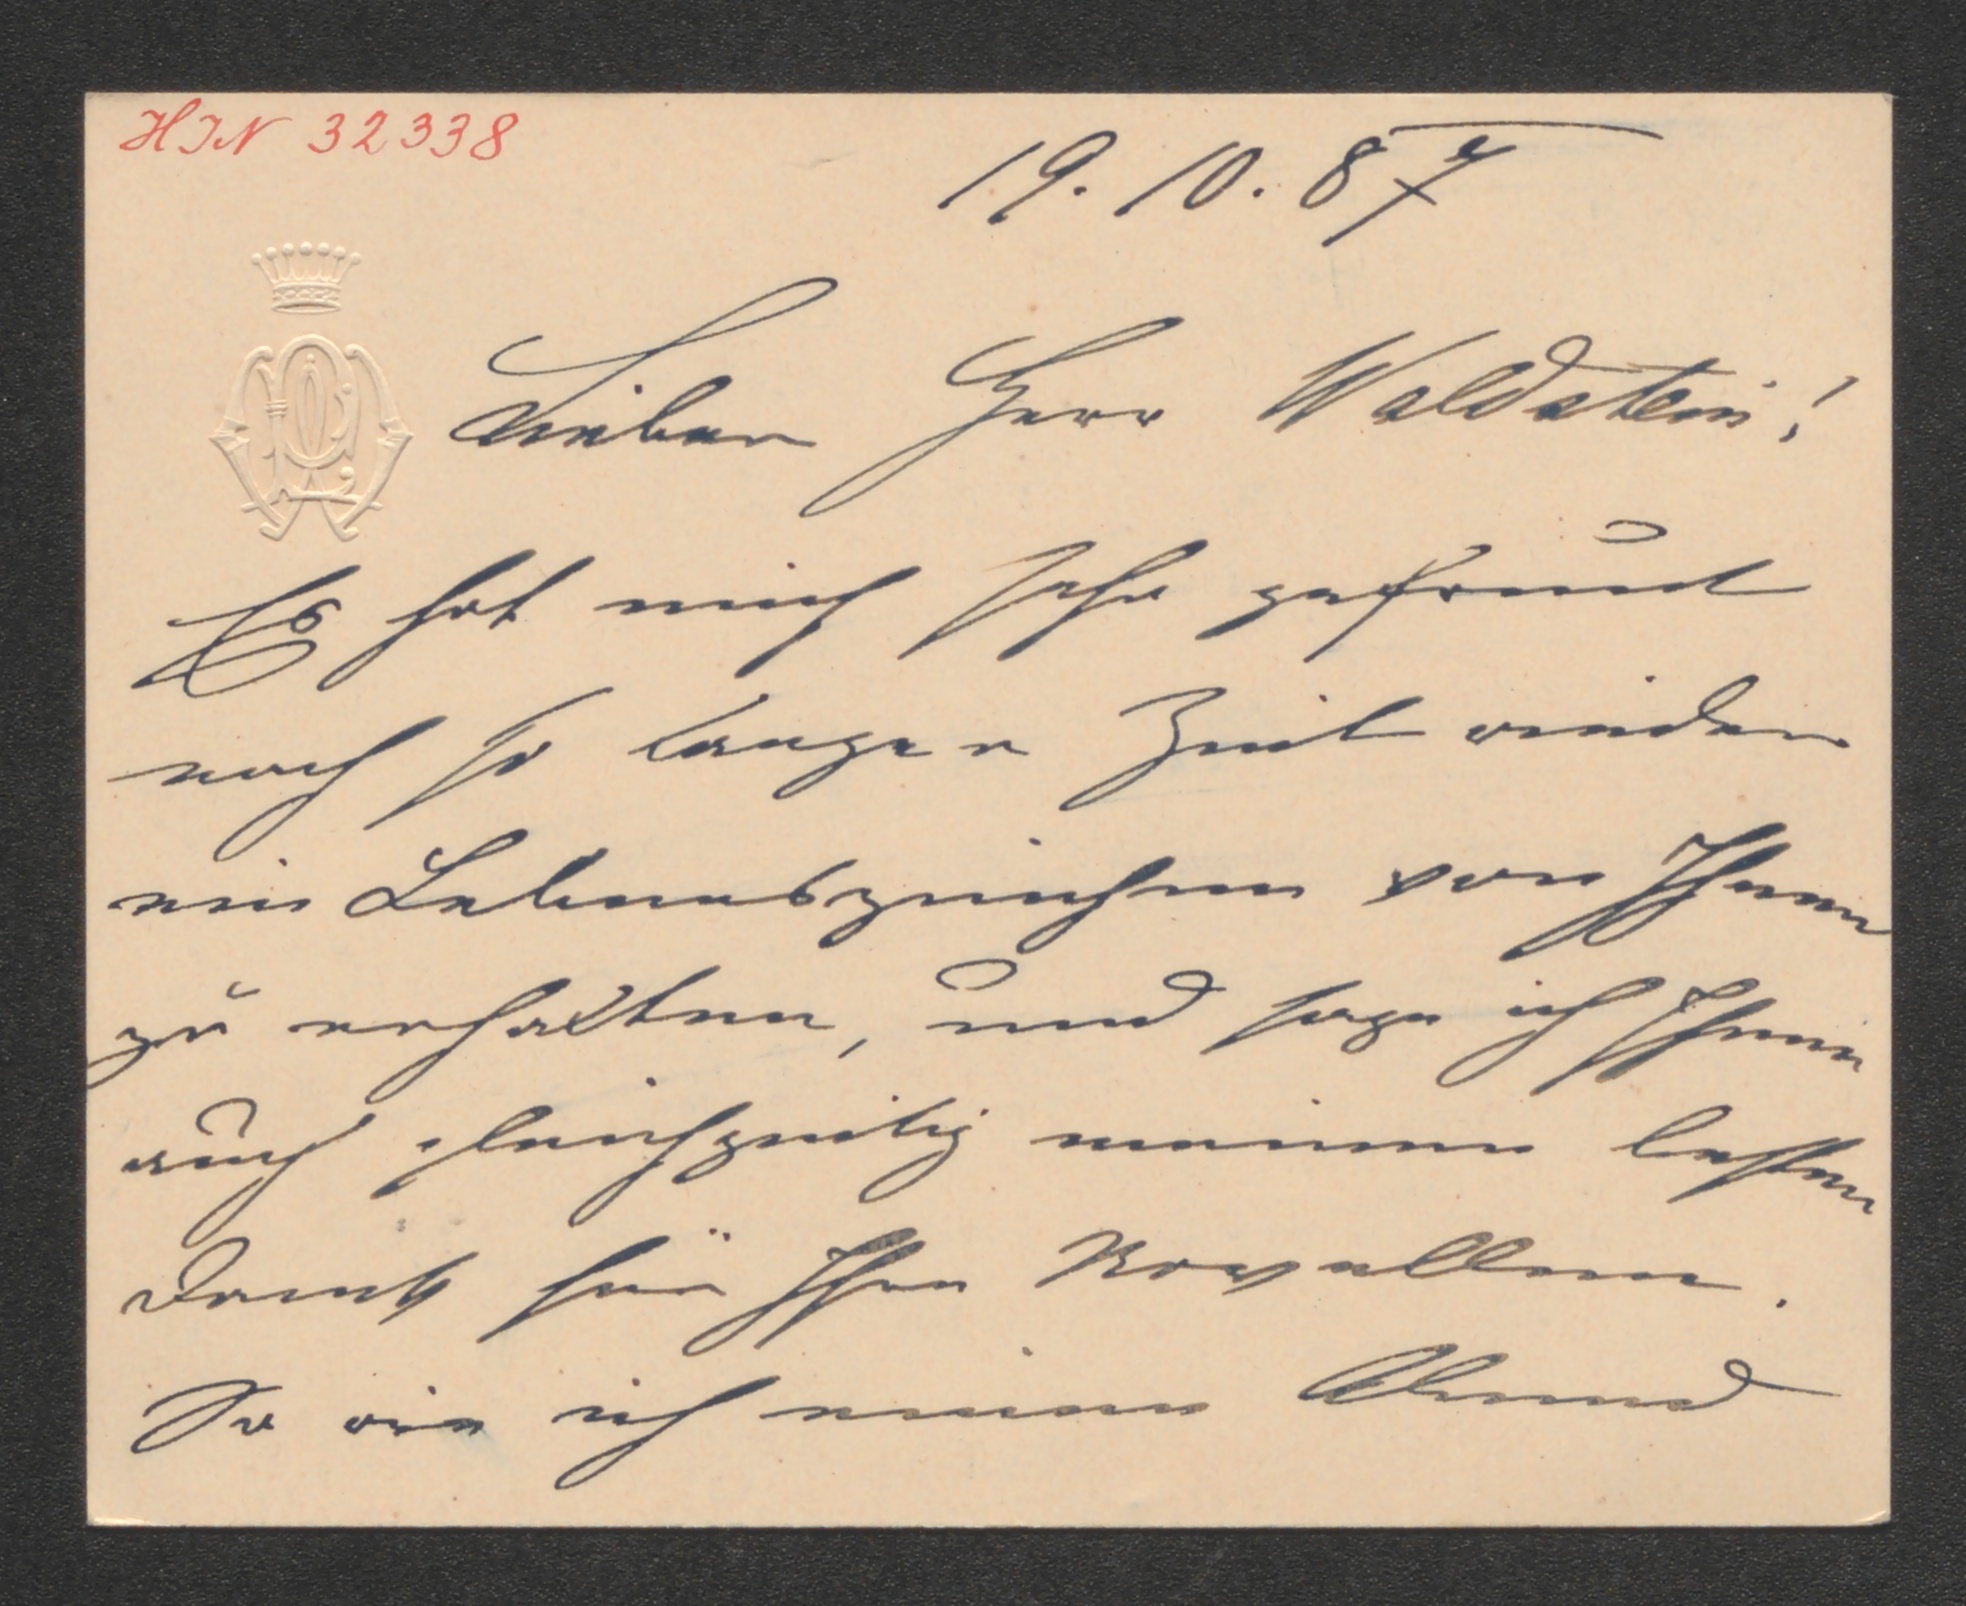 HIN 32338
19. 10. 87
Lieber Herr Waldstein!
Es hat mich sehr gefreut
nach so langer Zeit wieder
ein Lebenszeichen von Ihnen
zu erhalten, und sage ich Ihnen
auch gleichzeitig meinen besten
Dank für Ihre Novellen.
So wie ich einen Abend